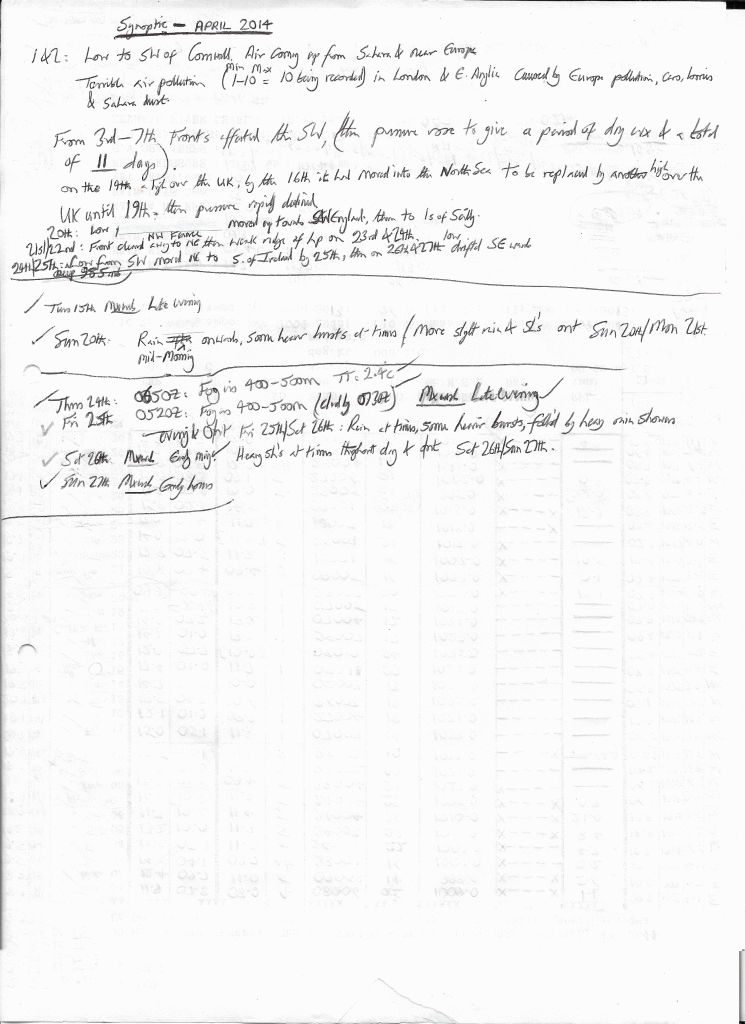 Synoptic — APRIL 2014
1&2: Low to SW of Cornwall. Air coming up from Sahara & over Europe
Min Max
Terrible air pollution (1–10 = 10 being recorded) in London & E. Anglia caused by Europe pollution, cars, lorries
& Sahara dust
From 3rd–7th Fronts affected the SW, (then pressure rose to give a period of dry wx & a total
of 11 days).
on the 14th: high over the UK, by the 16th it had moved into the North Sea to be replaced by another high over the
UK until 19th: then pressure rapidly declined
20th: Low NW France moved up towards SW England, then to Is of Scilly.
21st/22nd: Front cleared away to NE then weak ridge of hp on 23rd & 24th. low
24th/25th: Low from SW moved NE to S. of Ireland by 25th, then on 26th & 27th drifted SE wards
985mb
Tues 15th Late evening
Sun 20th: Rain onwards, some heavier bursts at times / More slight rain & SL's ont Sun 20th/Mon 21st.
mid-Morning
Thurs 24th: 0650Z: Fog in 400–500m TT: 2.4c
Fri 25th 0520Z: Fog in 400–500m (clearly 0730Z) Late evening
evening & O/nt Fri 25th/Sat 26th: Rain at times, some heavier bursts, foll'd by heavy rain showers
Sat 26th Early mng: Heavy sh's at times thg'hout day & o/nt Sat 26th/Sun 27th.
Sun 27th Early hours